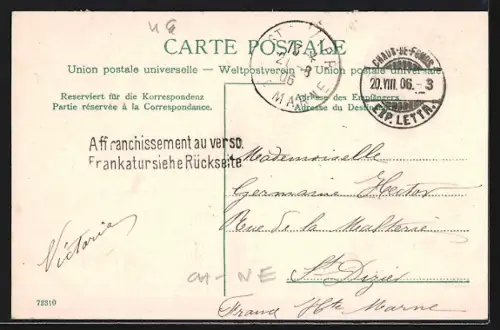 4G
CARTE POSTALE
Union postale universelle — Weltpostverein — Union postale universale
Reserviert für die Korrespondenz
Partie réservée à la Correspondance.
Adresse des Empfängers
Adresse du Destinataire
ST DIZIER
21 - 8
06
MARNE
CHAUX-DE-FONDS
20.VIII.06.-3
EXP. LETTR.
Affranchissement au verso.
Frankatur siehe Rückseite
Mademoiselle
Germaine Hector
Rue de la
St Dizier
Hte Marne
Victoria
CH-NE
72310